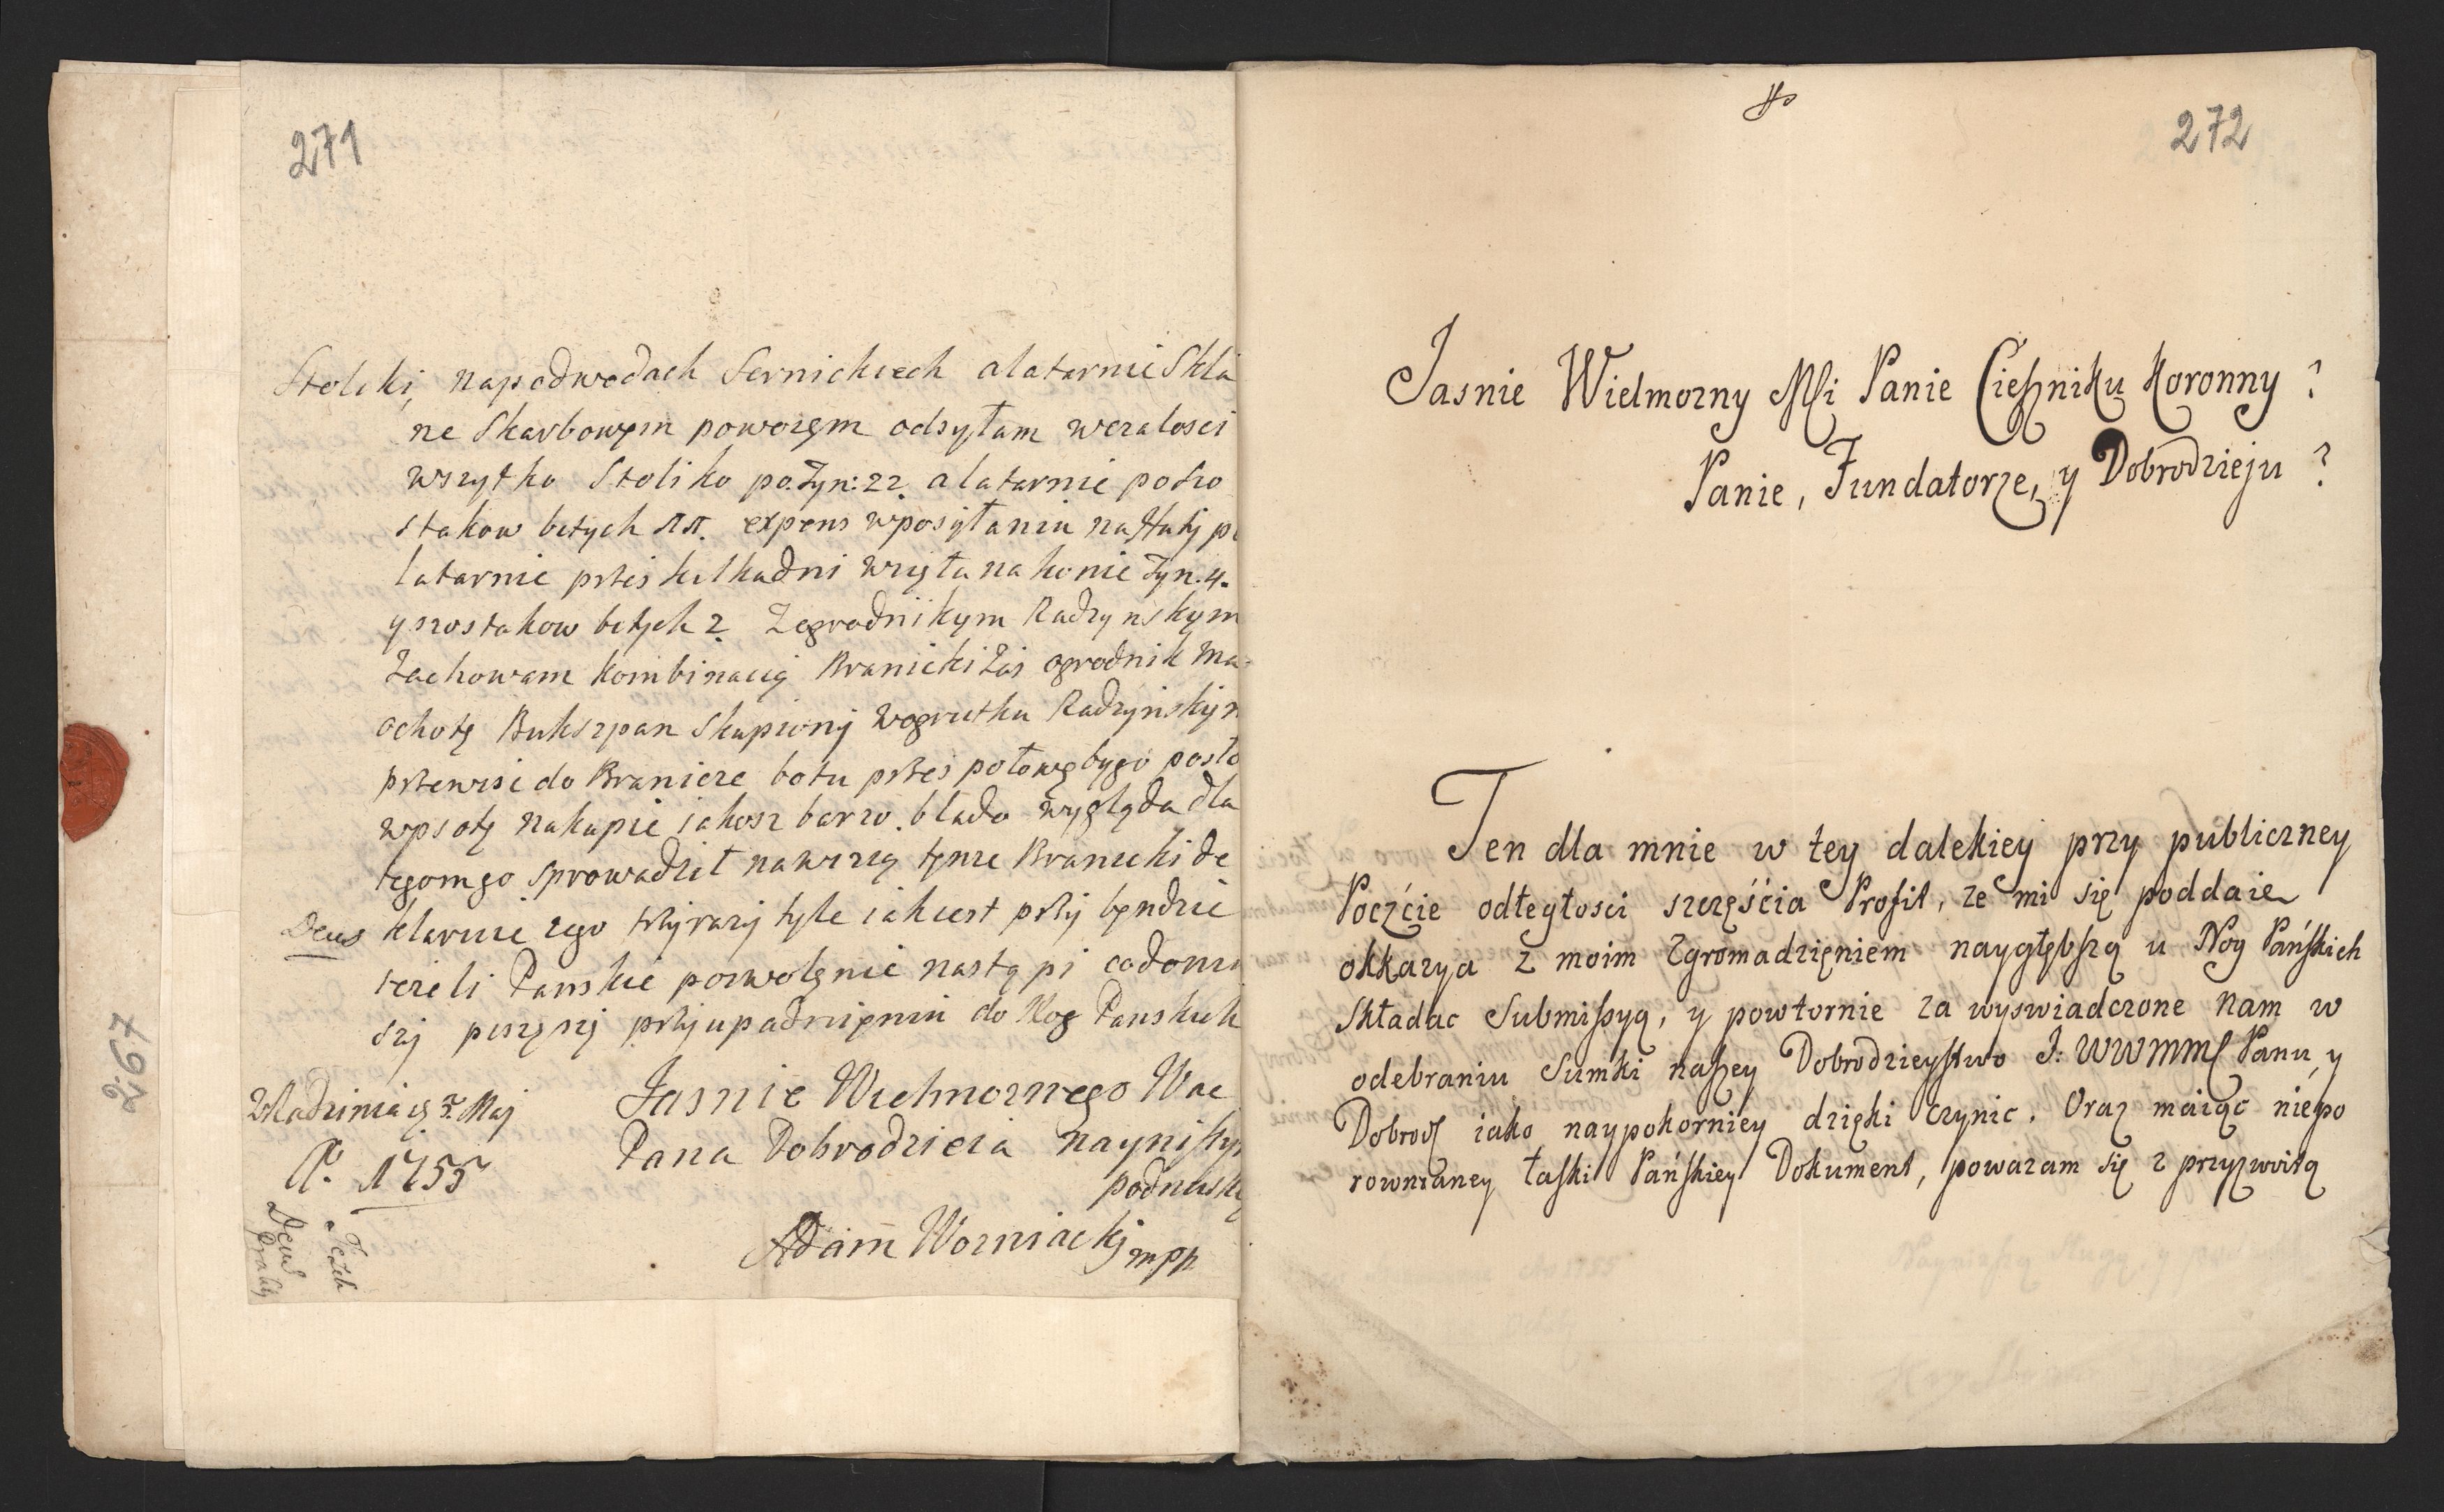 271
Stoliki, napodwodach Sernickiech alatarnie Skla
ne Skarbowym powozem odsyłam wcałosci
wszytko Stoliko po Tyn: 22. alatarnie poszo
stakow bitych expens wposyłaniu
latarnie przes kilkadni wzięta na konie Tyn. 4.
y szostakow bitych 2. Zogrodnikym Radzynskym
Zachowam Kombinacią Branicki Zas ogrodnik ma
ochotę Bukszpan Skupiony wogrutku Radzynskym
przewisc do Branicze botu przes połowę bygo posło
wpsotę nakupie iakosz barzo. blado wygląda dla
tegom go sprowadził tenze Branicki de
klaruie zego trzy razy tyle iak iest przy będzie
Deus
iezeli Panskie pozwolęnie nastąpi
szy piszęszy przy upadnięniu do Nog Panskich
WRadziniu 3. Maj
A. 1755
Jasnie Wielmoznego
Pana Dobrodzieia nayniszy
podnuszk
Adam Wozniacky mpp
Deus
267
272
Jasnie Wielmozny Msi Panie Cieszniku Koronny?
Panie, Fundatorze, y Dobrodzieju?
Ten dla mnie w tey dalekiey przy publiczney
Poczcie odłegłosci szczęścia Profit, ze mi się poddaie
okkazya z moim Zgromadzięniem naygłębszą u Nog Pańskich
Składac Submissyą, y powtornie za wyswiadczone nam w
odebraniu Sumki naszey Dobrodzieystwo J: WWMMS Panu, y
Dobrod iako naypokorniey dzięki czynic. Oraz maiąc niepo
rownaney łaski Pańskiey Dokument, powazam się z przyzwoitą